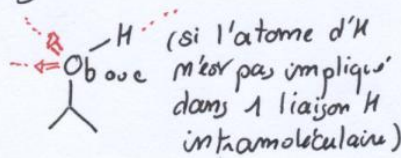 H (si l'atome d'H
O boue n'est pas impliqué
dans 1 liaison H
intramoléculaire)